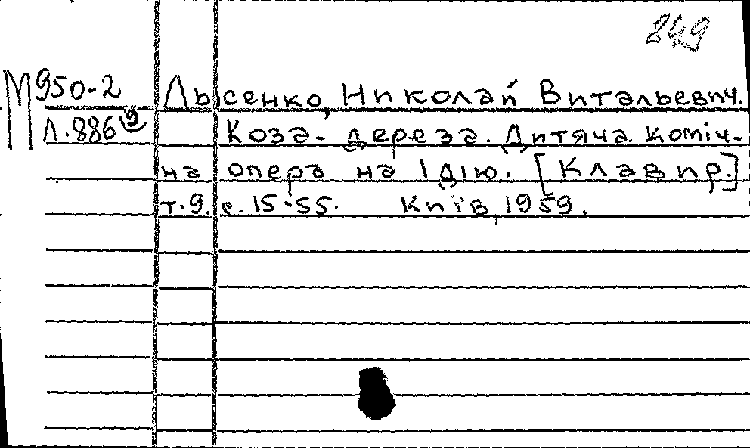 849
М 950-2
Л.886
Лысенко, Николай Витальевич.
Коза-дереза. Дитяча коміч-
на опера на 1 дію. [Клавир.]
т.9. с. 15-55. Київ, 1959.